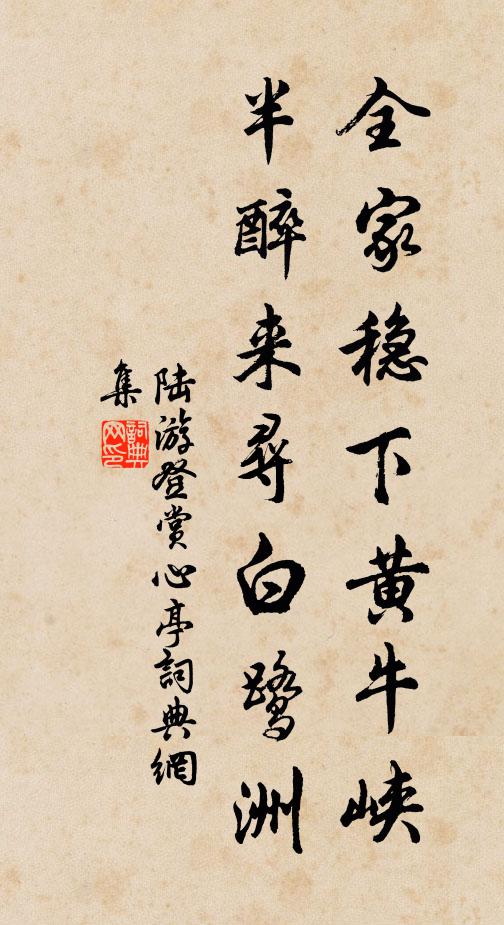 全家稳下黄牛峡
半醉来寻白鹭洲
陆游登赏心亭詞典網
集
詞典網印